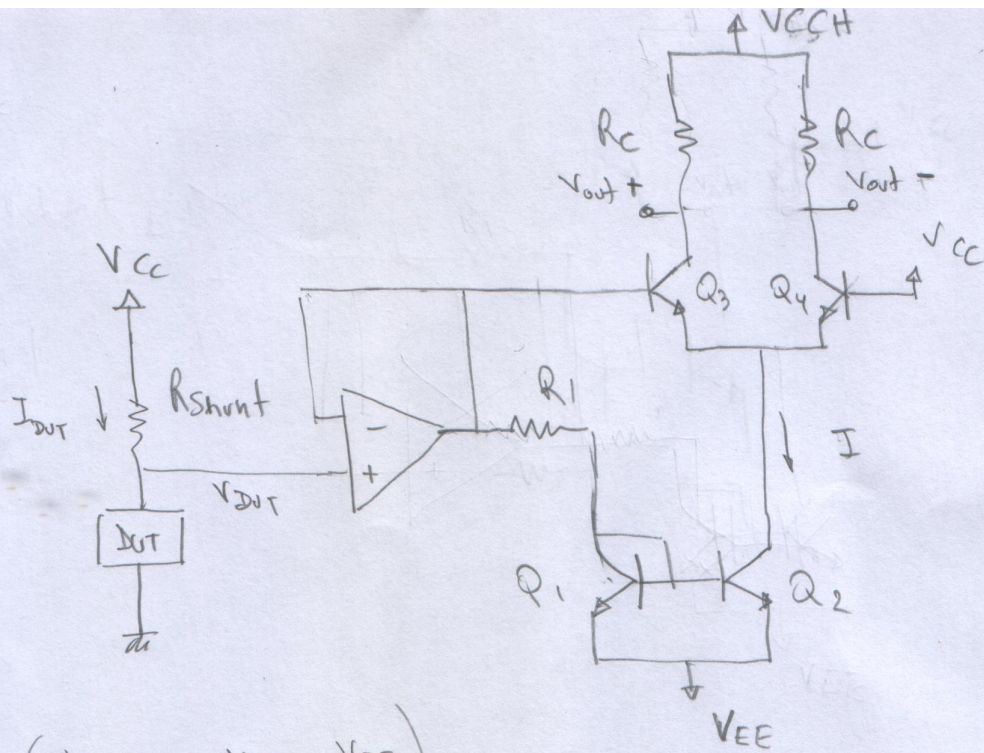 VCCH
Rc
Rc
Vout +
Vout -
Vcc
Vcc
Q3
Q4
Rshunt
IDUT
R1
I
-
+
VDUT
DUT
Q1
Q2
VEE
VEE